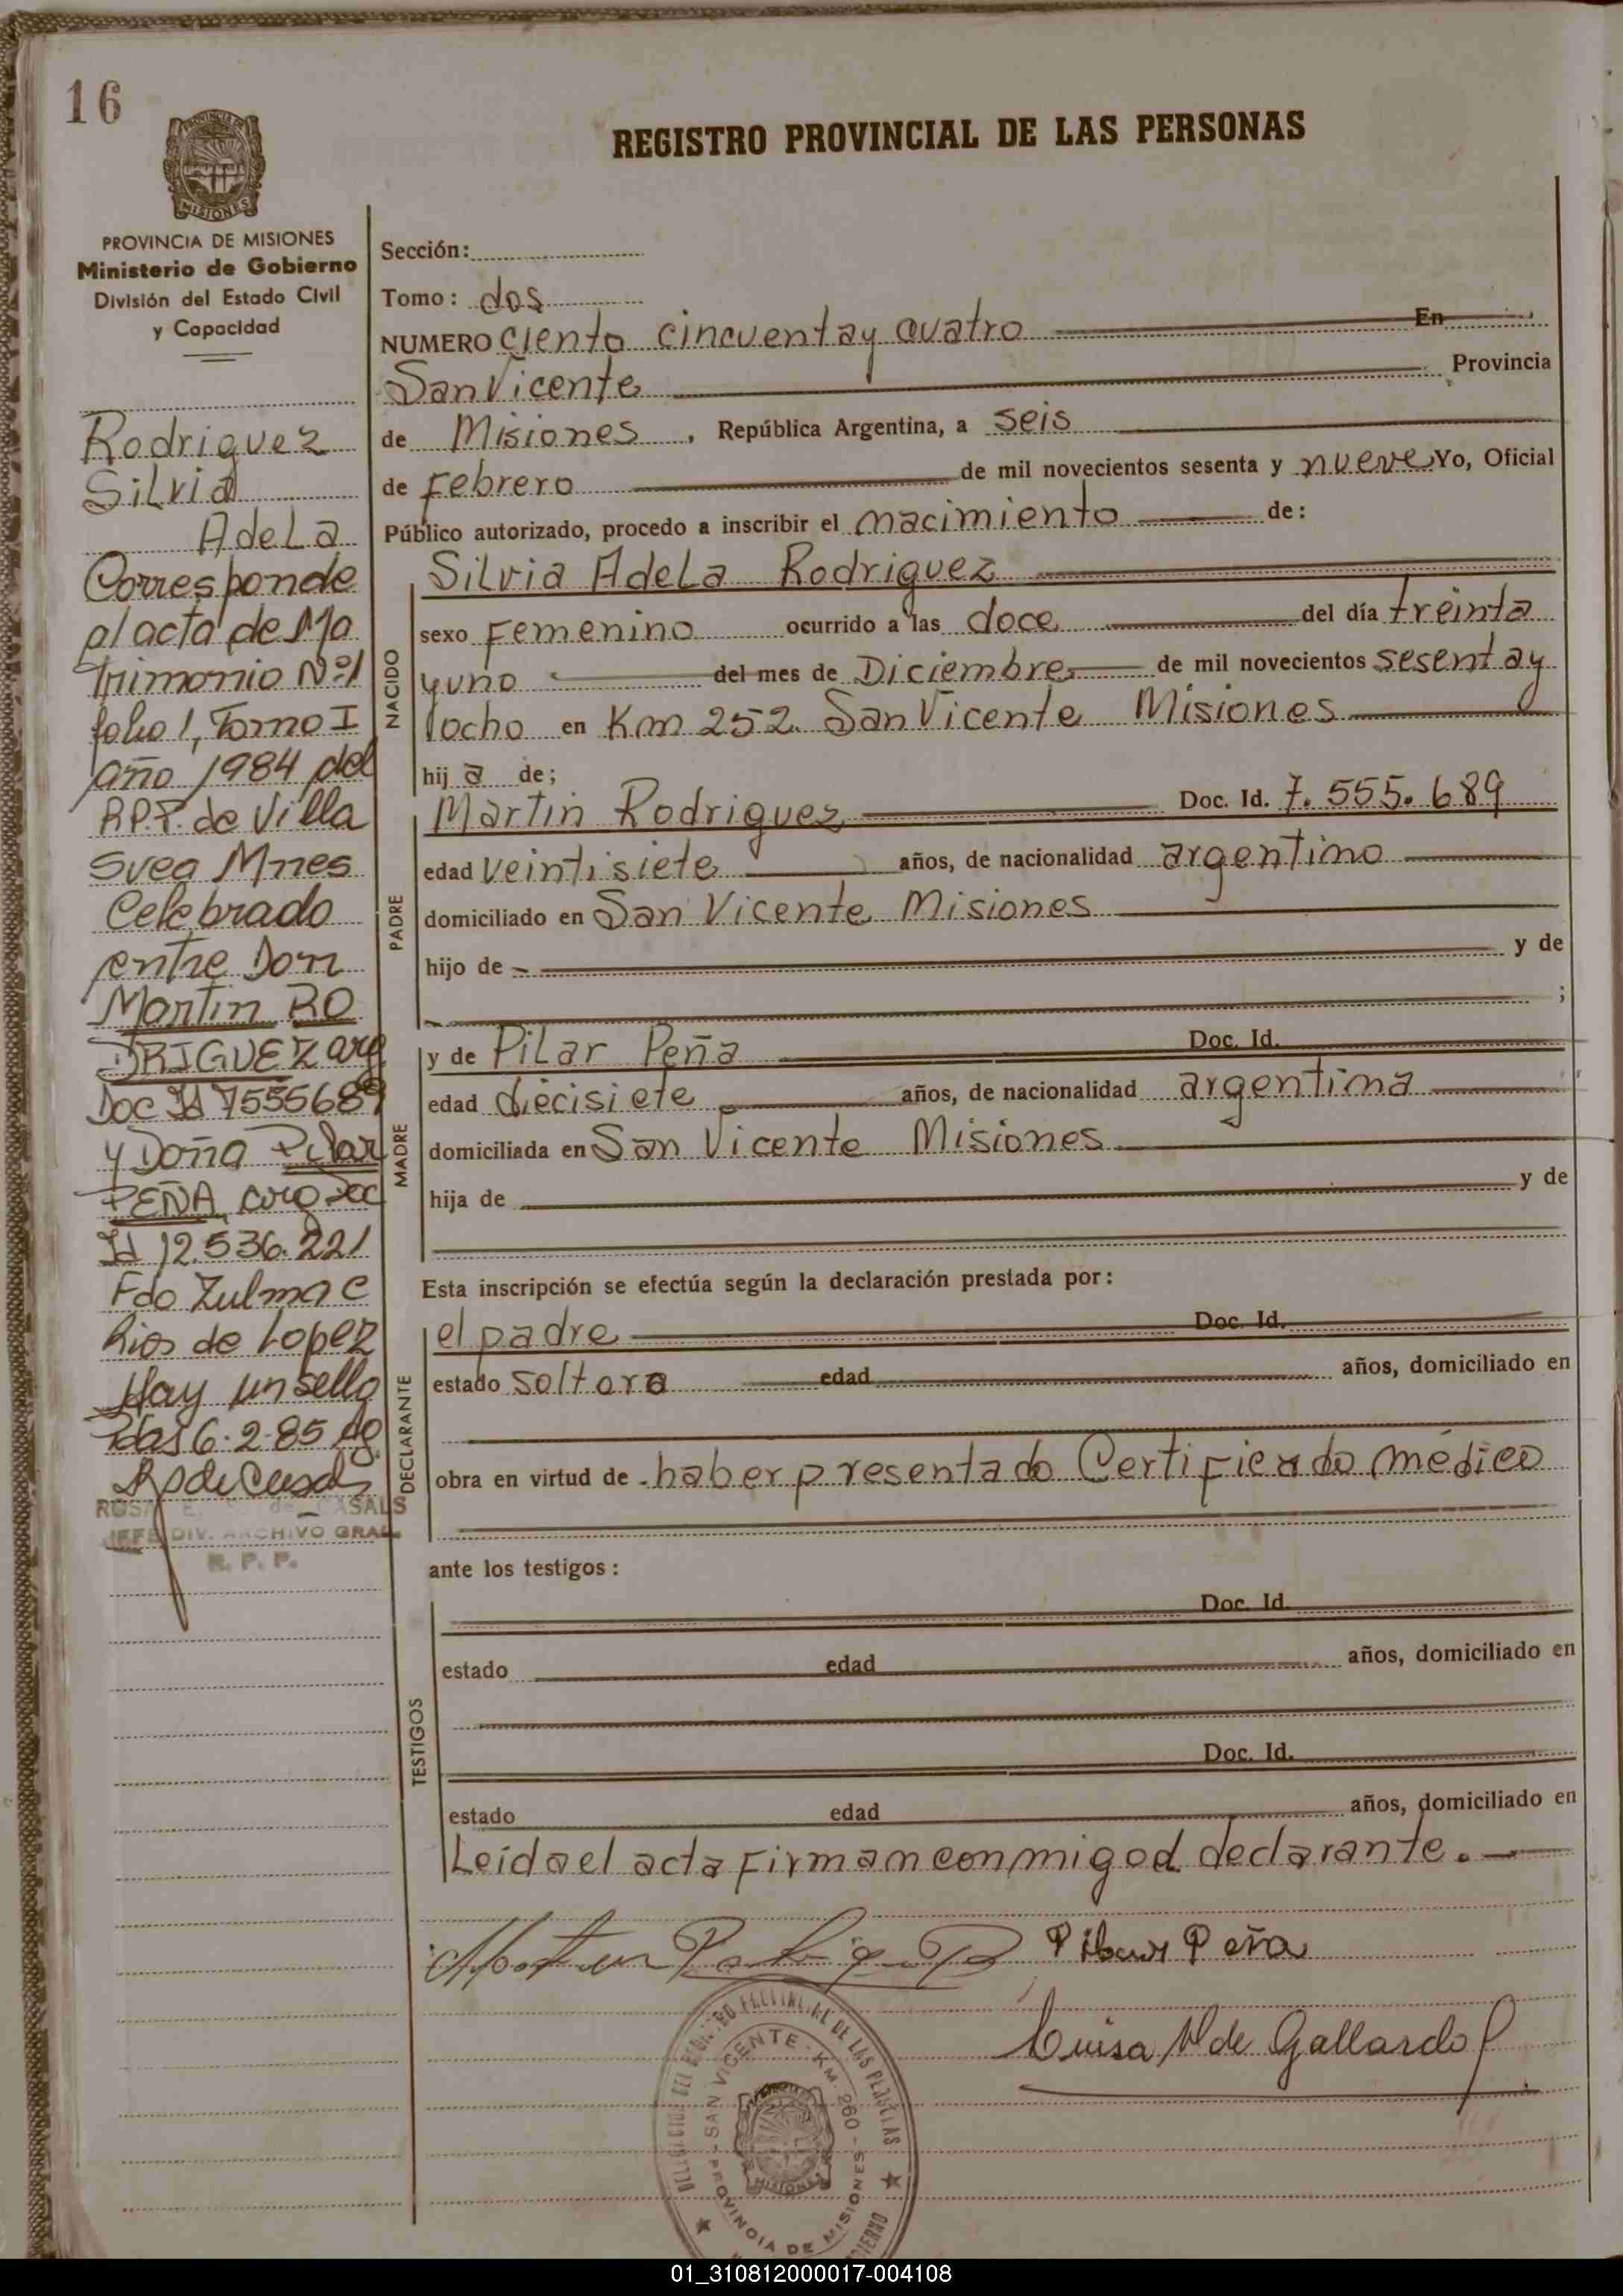 16
REGISTRO PROVINCIAL DE LAS PERSONAS
PROVINCIA DE MISIONES
Ministerio de Gobierno
División del Estado Civil
y Capacidad
Rodriguez
Silvia
Adela
Corresponde
al acta de Ma
trimonio Nº 1
folio 1, Tomo I
año 1984 del
R.P.P. de Villa
Svea Mnes
Celebrado
entre Don
Martin RO
DRIGUEZ arg
Doc Id 7555689
y Doña Pilar
PEÑA, arg Doc
Id 12.536.221
Fdo Zulma C
Rios de Lopez
Hay un sello
Pdas 6-2-85
JEFE DIV. ARCHIVO GRAL
R. P. P.
Sección:
Tomo: dos
NUMERO ciento cincuenta y cuatro En
San Vicente Provincia
de Misiones, República Argentina, a seis
de Febrero de mil novecientos sesenta y nueve Yo, Oficial
Público autorizado, procedo a inscribir el nacimiento de:
NACIDO
Silvia Adela Rodriguez
sexo Femenino ocurrido a las doce del día treinta
y uno del mes de Diciembre de mil novecientos sesenta y
ocho en Km 252. San Vicente Misiones
hij a de;
PADRE
Martin Rodriguez Doc. Id. 7.555.689
edad veintisiete años, de nacionalidad argentino
domiciliado en San Vicente Misiones
hijo de y de
;
MADRE
y de Pilar Peña Doc. Id.
edad diecisiete años, de nacionalidad argentina
domiciliada en San Vicente Misiones
hija de y de
Esta inscripción se efectúa según la declaración prestada por:
DECLARANTE
el padre Doc. Id.
estado soltero edad años, domiciliado en
obra en virtud de haber presentado Certificado médico
ante los testigos:
TESTIGOS
Doc. Id.
estado edad años, domiciliado en
Doc. Id.
estado edad años, domiciliado en
Leida el acta firman conmigo el declarante.
Martin Rodriguez Pilar Peña
Luisa de Gallardo
DELEGACION DEL REGISTRO PROVINCIAL DE LAS PERSONAS
SAN VICENTE - KM. 260 -
PROVINCIA DE MISIONES
MISIONES
01_310812000017-004108